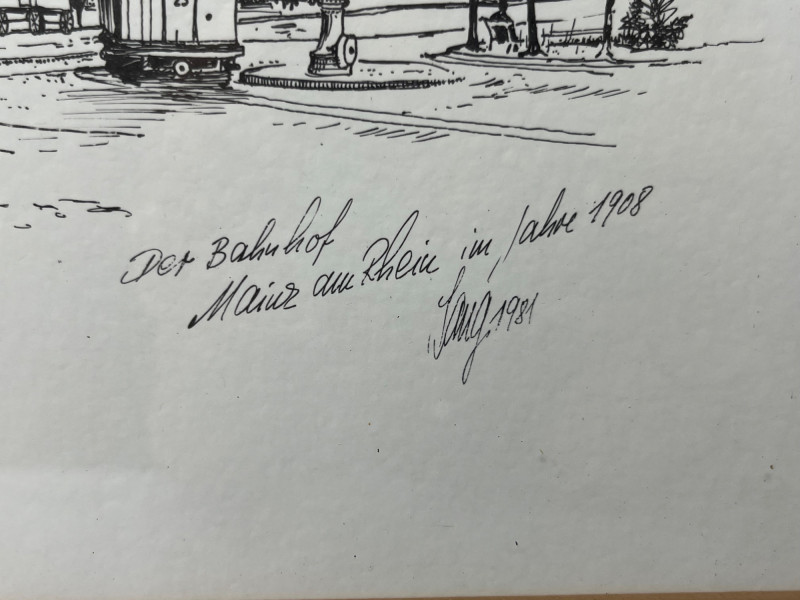 25
Der Bahnhof
Mainz am Rhein im Jahre 1908
1981